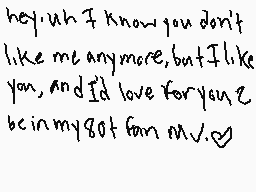 hey. uh I know you don't
like me anymore, but I like
you, and I'd love for you 2
be in my 80+ fan mv.♡